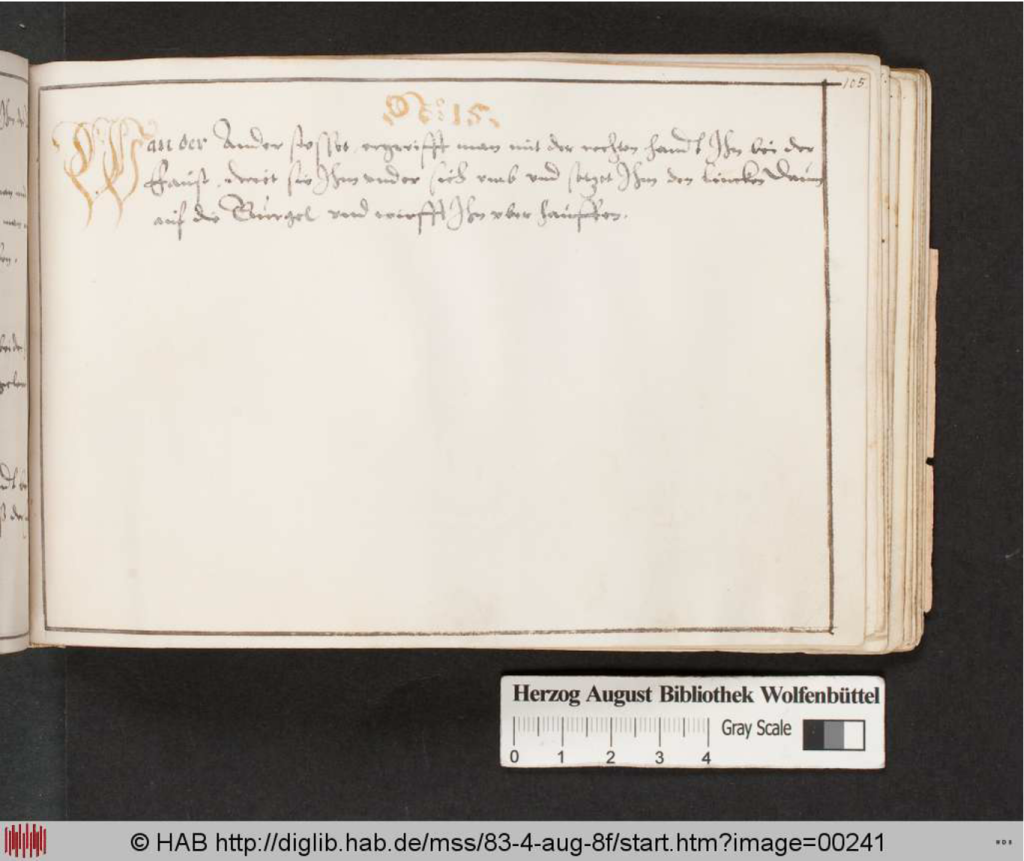 105
No: 15.
Wan der Ander stosset, ergreifft man mit der rechten handt Ihn bei der
Faust, dreet sie Ihm under sich umb und setzet Ihm den lincken Daum
auf die Gurgel und wirfft Ihn uber hauffen.
Herzog August Bibliothek Wolfenbüttel
Gray Scale
0 1 2 3 4
© HAB http://diglib.hab.de/mss/83-4-aug-8f/start.htm?image=00241